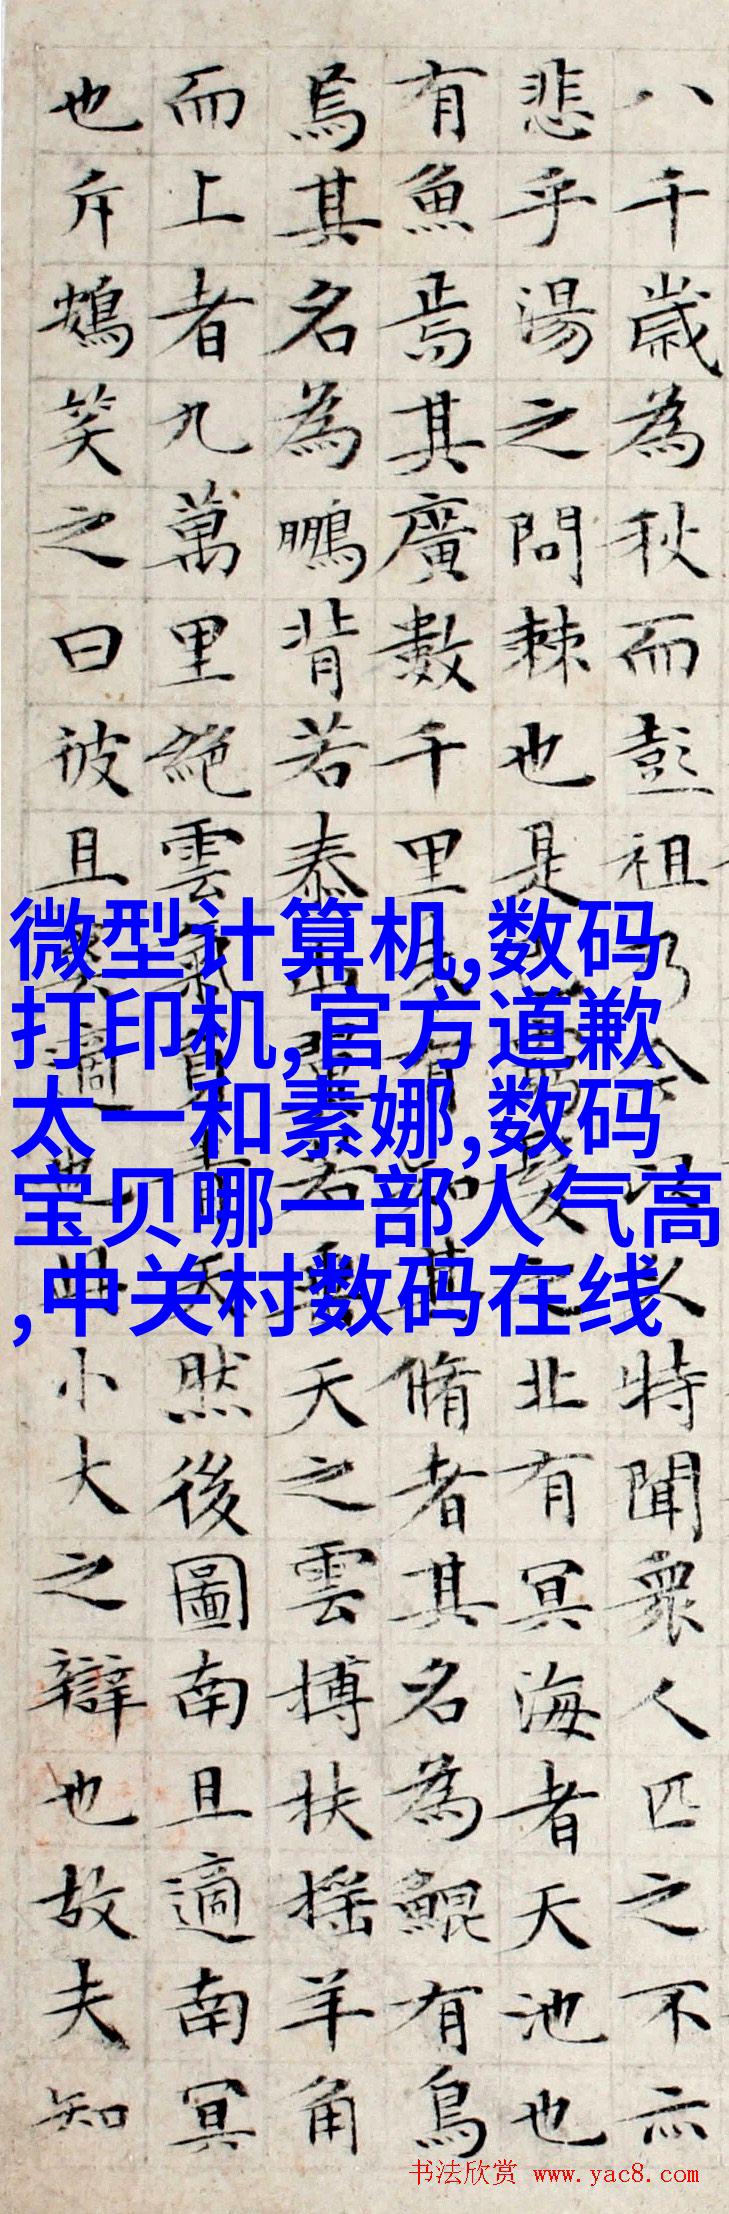 八千歲為秋而彭祖乃今以久特聞衆人匹之不亦
悲乎湯之問棘也是已窮髮之北有冥海者天池也
有魚焉其廣數千里未有知其脩者其名為鯤有鳥
焉其名為鵬背若泰山翼若垂天之雲搏扶搖羊角
而上者九萬里絕雲氣負青天然後圖南且適南冥
也斥鴳笑之曰彼且奚適也此小大之辯也故夫知
微型计算机,数码
打印机,官方道歉
太一和素娜,数码
宝贝哪一部人气高
,中关村数码在线
书法欣赏 www.yac8.com